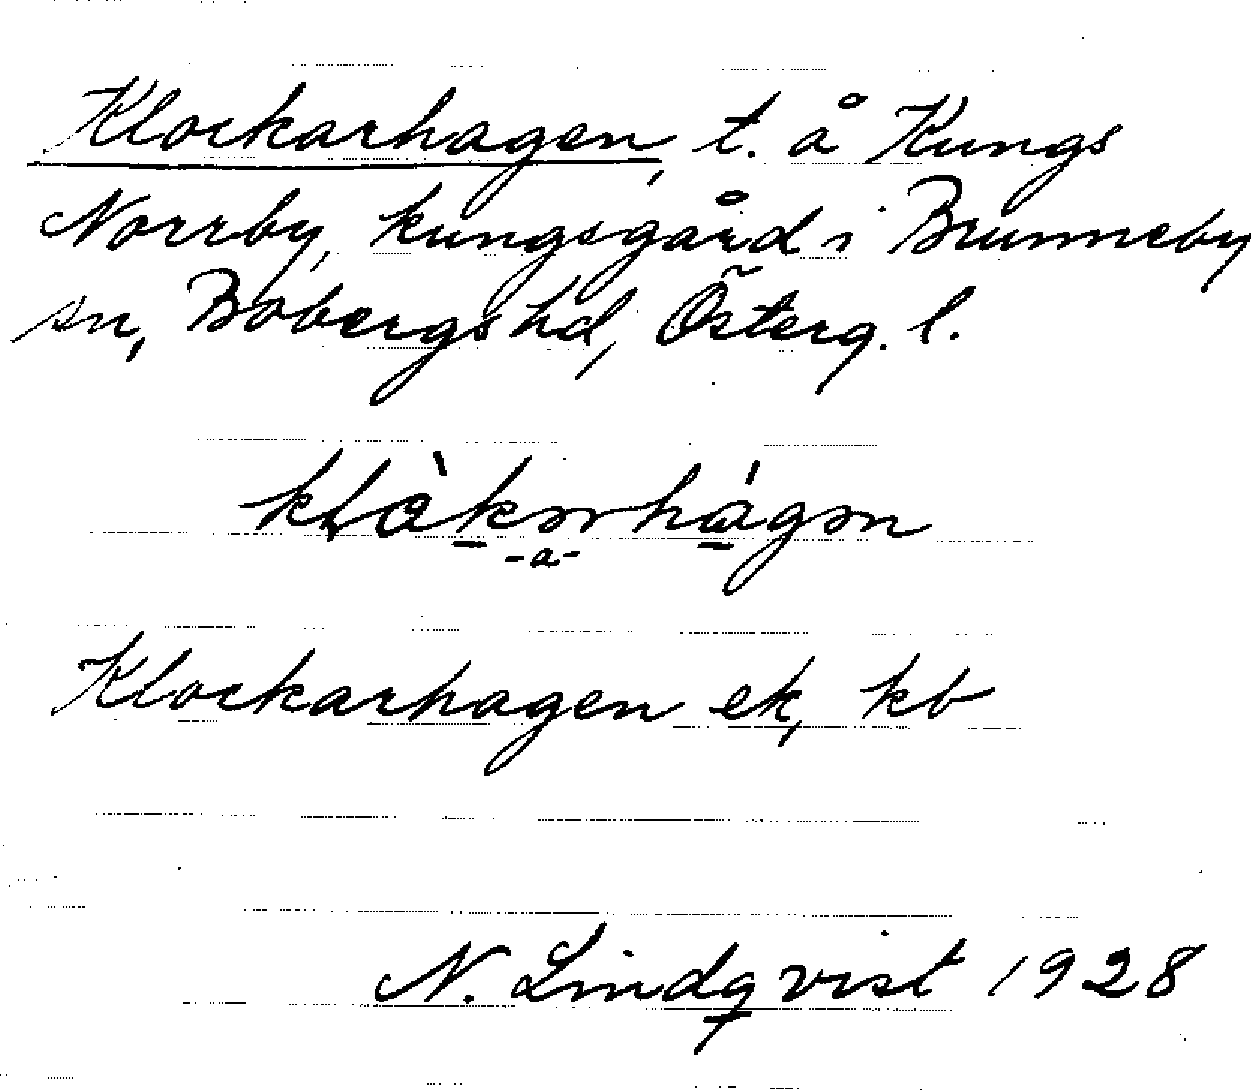 Klockarhagen, t. å Kungs
Norrby, kungsgård i Brunneby
sn, Bobergs hd, Österg. l.
Klockarhagen ek, kb
N. Lindqvist 1928